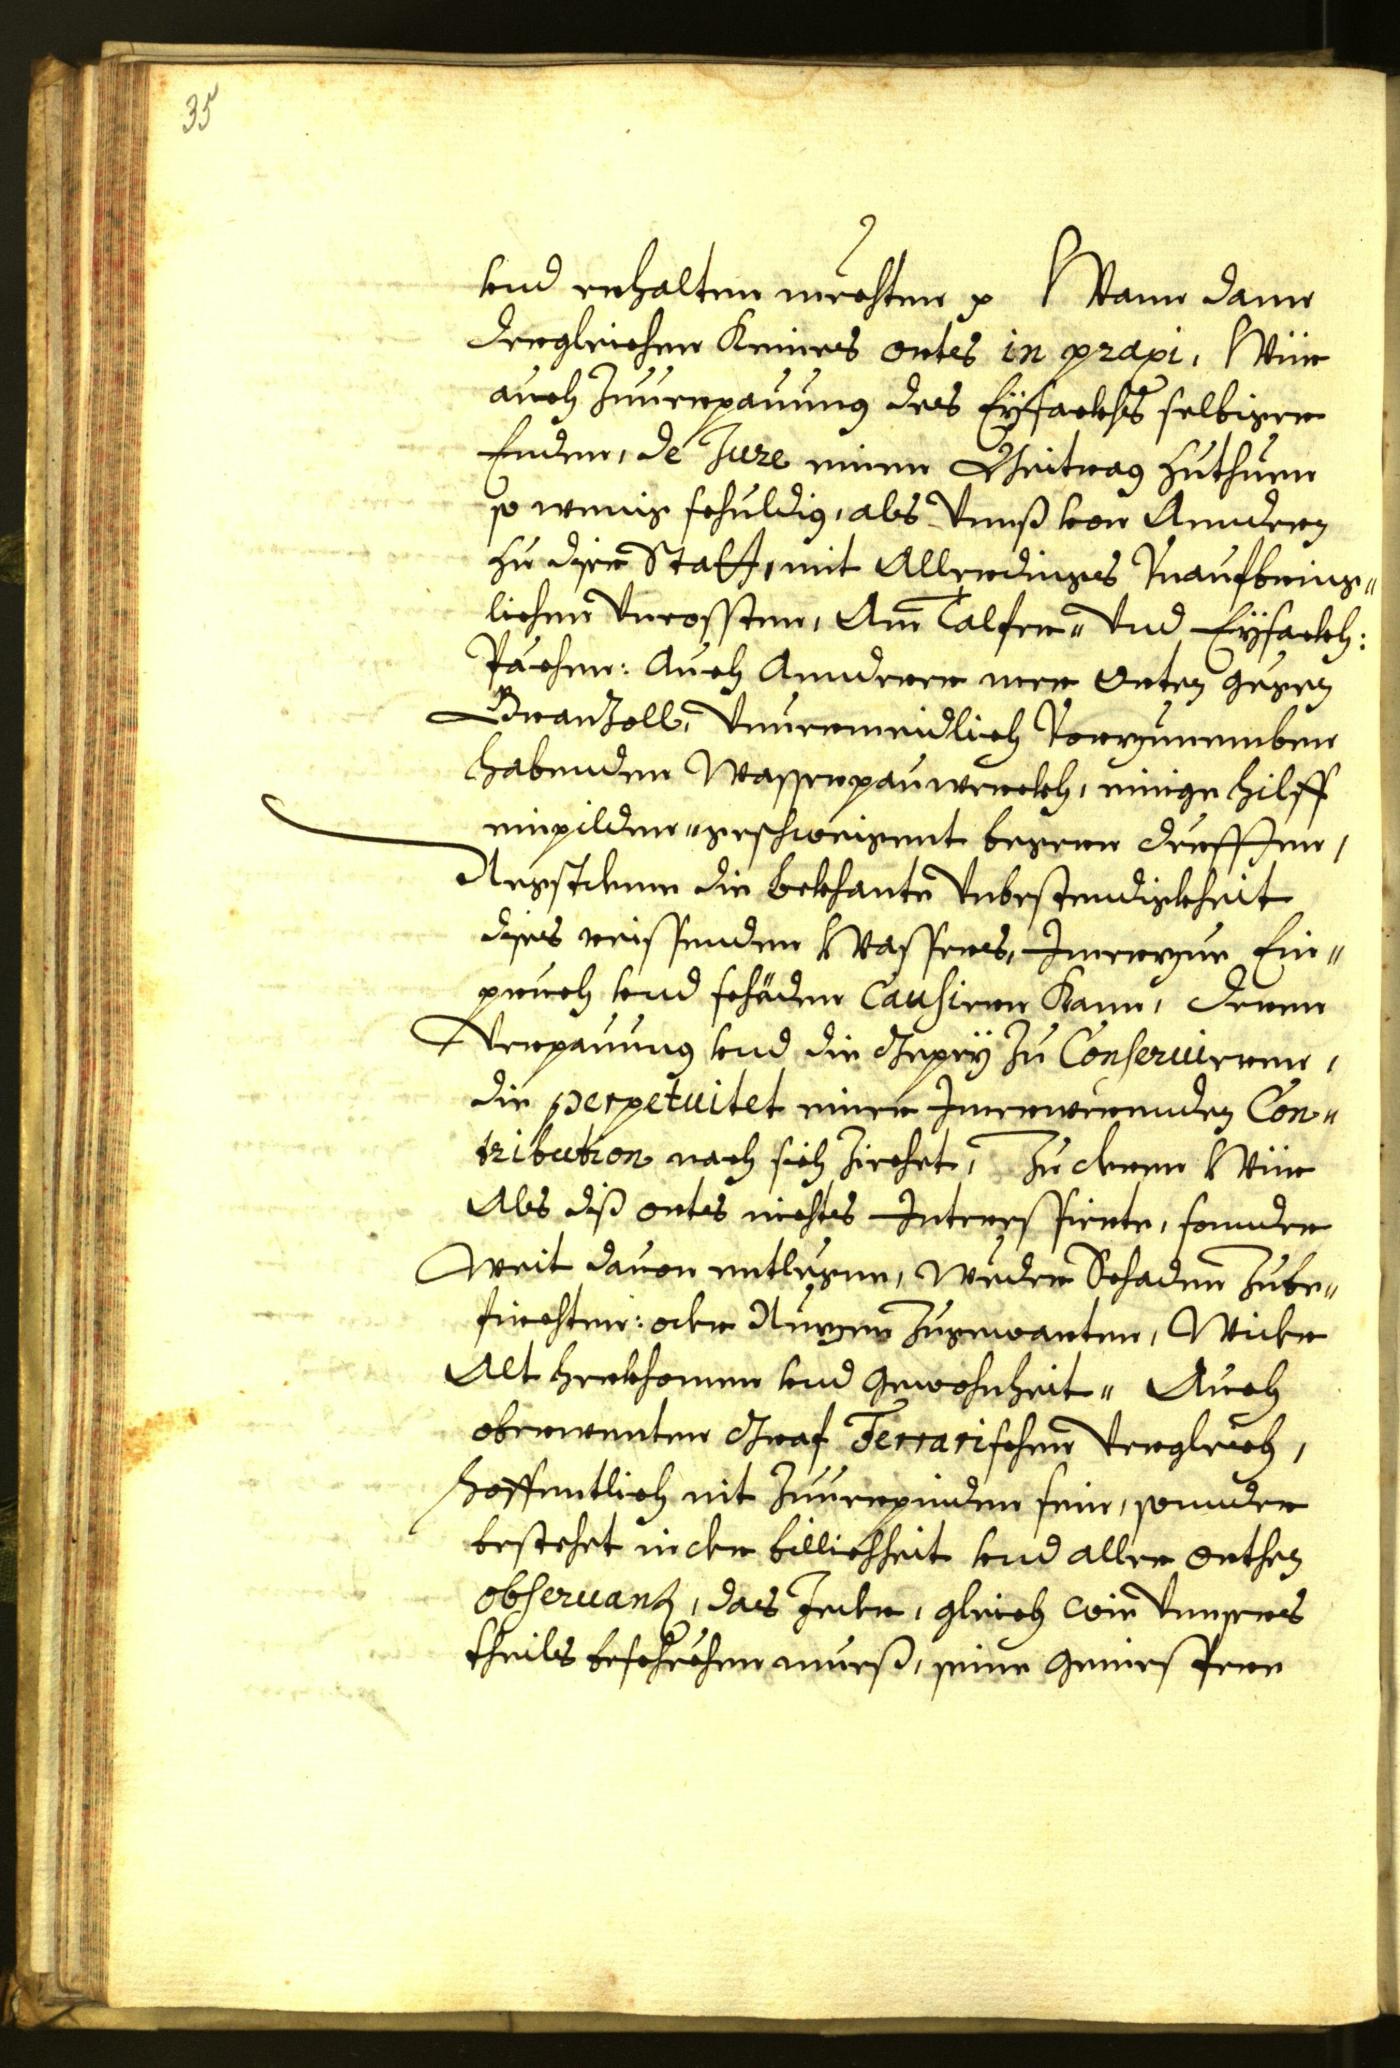 35
vnd erhalten mechten p Wann dann
dergleichen Keines ortes in praxi, Wür
auch Zuuerpauung des Eÿsackhs selbiger
Enden, de Jure einen Beitrag zuthuen
so wenig schuldig, als vnnß von Anndern
zu diser Statt, mit Allerdinges vnaufbring„
lichen vncossten, Am Talfer„ vnd Eÿsackh:
Rächen: Auch Annderer mer Orten gegen
Branzoll, vnuermeidlich Vorzunemben
habenden Wasserpauwerckh, einige hilff
einpilden„ geschweigent begeren derffen,
Negstdeme die bekhante vnbestendigkheit
dises reissenden Wassers, Jmmerzue Ein„
pruch vnd schäden Causieren Kann, deren
Verpauung vnd die Gepey zu Conseruieren,
die perpetuitet einer Jmerwerenden Con„
tribution nach sich ziechet, Zu deme Wür
Als diß ortes nichts Interessierte, sonnder
weit dauon entlegne, weder Schaden zube„
fürchten: oder Nuzen zugewarten, Wider
Alt herkhomen vnd gewohnheit„ Auch
oberwenten Graf Ferrarischen vergleich,
hoffentlich nit zuuerpinden sein, sonnder
bestehet in der billichheit vnd aller orthen
obseruanz, das Jeder, gleich wie vnnsers
theils beschechen mueß, seine Geniesser